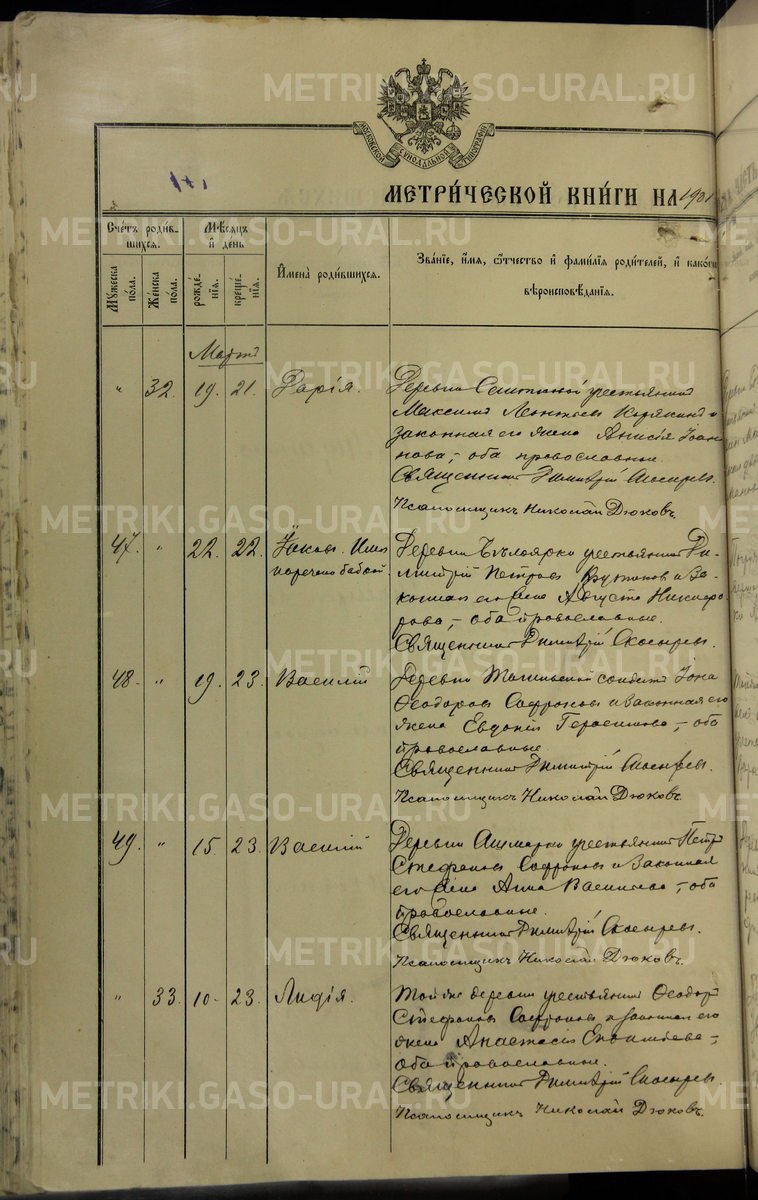 МОСКОВСКОЙ СѴНОДАЛЬНОЙ ТИПОГРАФІИ
МЕТРИ́ЧЕСКОЙ КНИ́ГИ НА 1901
Сче́тъ роди́в-
шихся.
Мѣ́сяцъ
и҆ де́нь
Му́жеска
по́ла.
Же́нска
по́ла.
рожде́-
нїѧ.
креще́-
нїѧ.
И҆мена̀ роди́вшихся.
Зва́нїе, и҆́мѧ, ѻ҆́тчество и҆ фами́лїѧ роди́телей, и҆ како́гѡ
вѣроисповѣ́данїѧ.
Мартъ
" 32. 19. 21. Дарія.
Деревни крестьянинъ
Максимъ Леонтьевъ Корякинъ и
законная его жена Анисія Іоан-
нова, – оба православные.
Священникъ Димитрій Скосыревъ.
Псаломщикъ Николай Дюковъ.
47. " 22. 22. Іаковъ. Имя
наречено бабкой.
Деревни Бѣлоярки крестьянинъ Ди-
митрій Петровъ и За-
конная его жена Августа Никифо-
рова, – оба православные.
Священникъ Димитрій Скосыревъ.
48. " 19. 23. Василій
Деревни солдатъ Іона
Ѳеодоровъ Сафроновъ и законная его
жена Евдокія Герасимова, – оба
православные.
Священникъ Димитрій Скосыревъ.
Псаломщикъ Николай Дюковъ.
49. " 15. 23. Василій
Деревни Ашмарки крестьянинъ Петръ
Стефановъ Сафроновъ и Законная
его жена Анна Васильева, – оба
православные.
Священникъ Димитрій Скосыревъ.
Псаломщикъ Николай Дюковъ.
" 33. 10. 23. Лидія.
Той же деревни крестьянинъ Ѳеодоръ
Стефановъ Сафроновъ и законная его
жена Анастасія –
оба православные.
Священникъ Димитрій Скосыревъ.
Псаломщикъ Николай Дюковъ.
METRIKI.GASO-URAL.RU